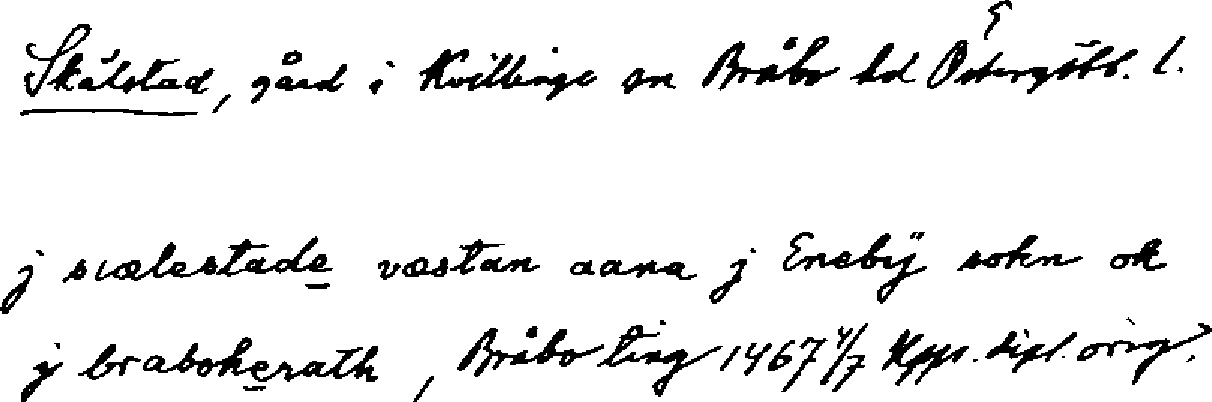 Skälstad, gård i Kvillinge sn Bråbo hd Östergötl. l.
j sıælestade væstan aana j Enebÿ sokn ok
j braboherath, Bråbo ting 1467 4/7 Kppr. dipl. orig.